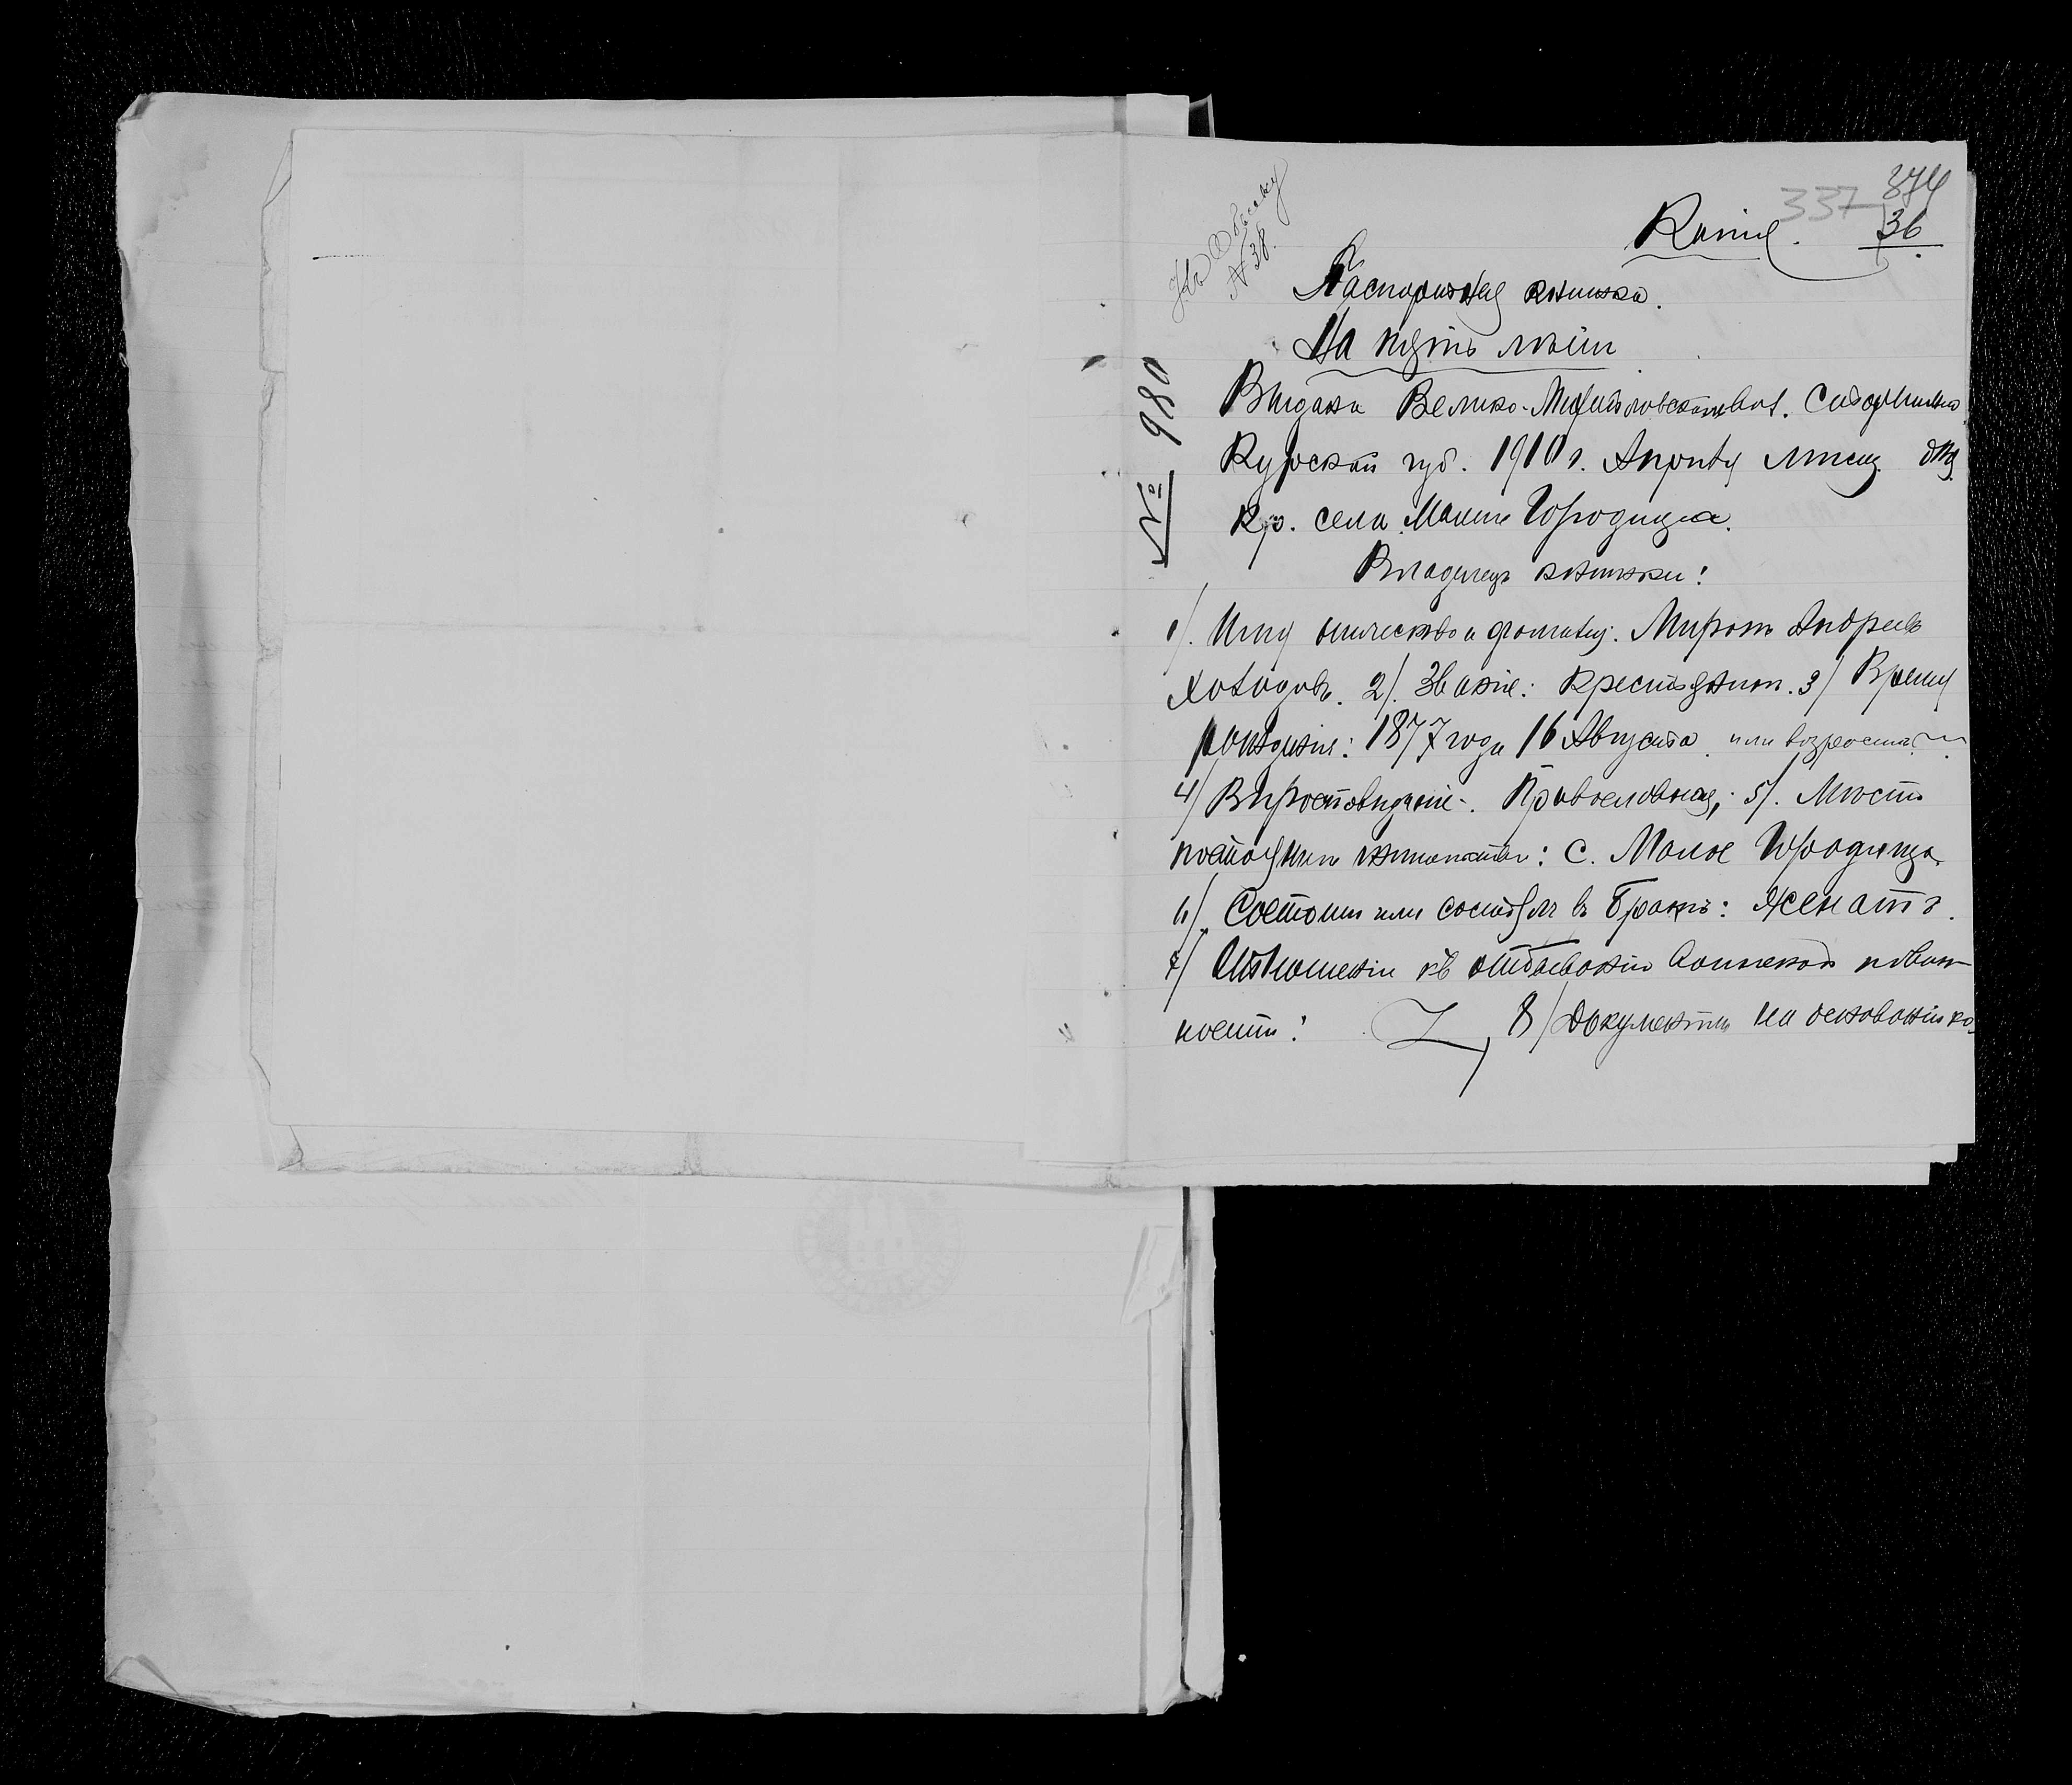 874
337
Копiя. 36
Къ
№ 38.
Паспортная книжка.
На пять лѣтъ
№ 980
Выдана Велико-Михайловскимъ Вол.
Курской губ. 1910 г. Апрѣля мѣсяц. дня
Кр. села Малаго Городища.
Владѣлецъ книжки:
1/. Имя отчество и фамилiя: Миронъ Андреевъ
Холодовъ. 2/. Званiе: Крестьянин. 3/ Время
рожденiя: 1877 года 16 Августа или возрастъ:
4/ Вѣроисповѣданiе: Православная; 5/. Мѣсто
постоянного жительства: с. Малое Городище
6/. Состоит или состоял въ бракѣ: Женатъ.
7/ Отношенiе къ отбыванiю воинской повин-
ности: 8/ Документы на основанiи ко-